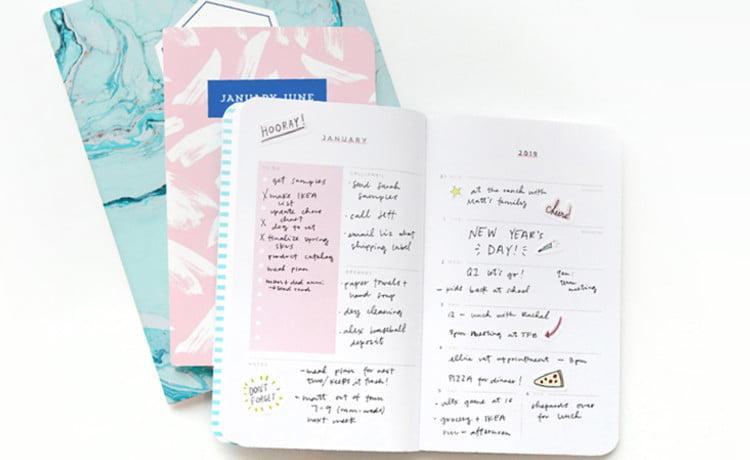 JANUARY-JUNE
HOORAY!
JANUARY
get samples
X make IKEA
list
update chore
chart
X dog to vet
X finalize spring
product catalog
meal plan
send sarah
samples
· call Jeff
· email liz what
shopping label
· paper towels +
hand soup
· dry cleaning
· alex baseball
deposit
NOTES
DON'T
FORGET
- meal plan for next
time/keeps it fresh!
- matt out of town
7-9 (mon-weds)
next week
2019
at the ranch with
Matt's family
cheers!
NEW YEAR'S
DAY!
Q2 let's go!
9am:
team
meeting
- kids back at school
12 - lunch with Rachel
3pm meeting at TFB
ellie vet appointment - 3pm
PIZZA for dinner!
- alex game at 10
- grocery + IKEA
run - afternoon
shepherds over
for lunch